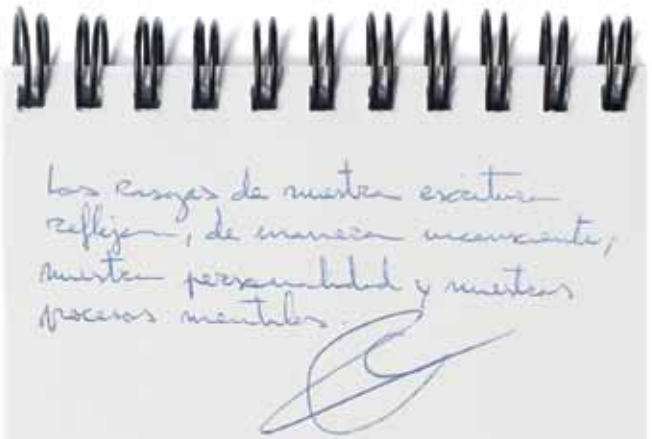 Los rasgos de nuestra escritura
reflejan, de manera inconsciente,
nuestra personalidad y nuestros
procesos mentales.